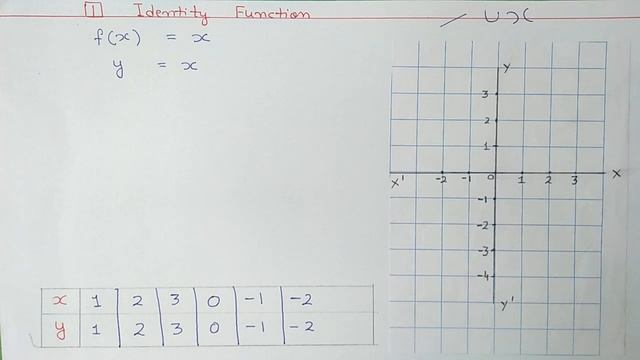 1 Identity Function
f(x) = x
y = x
x 1 2 3 0 -1 -2
y 1 2 3 0 -1 -2
Y
3
2
1
X' -2 -1 0 1 2 3 X
-1
-2
-3
-4
Y'